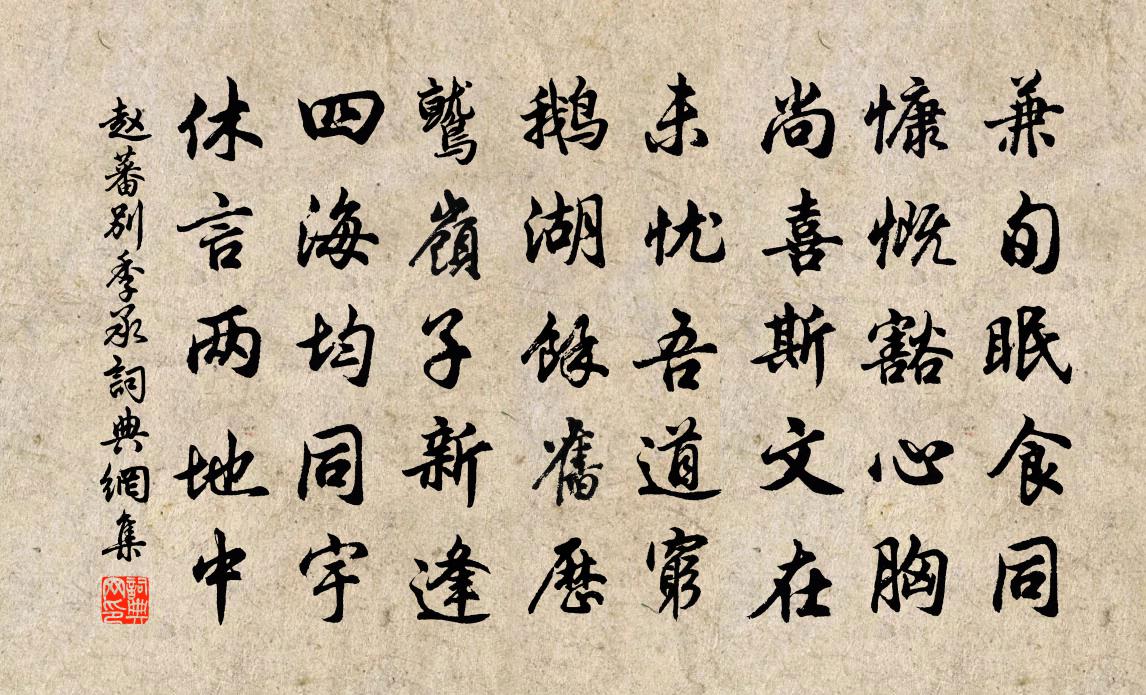 兼旬眠食同
慷慨豁心胸
尚喜斯文在
未忧吾道窮
鹅湖餘舊歷
鷲嶺子新逢
四海均同宇
休言两地中
赵蕃别季承詞典網集
詞典网印